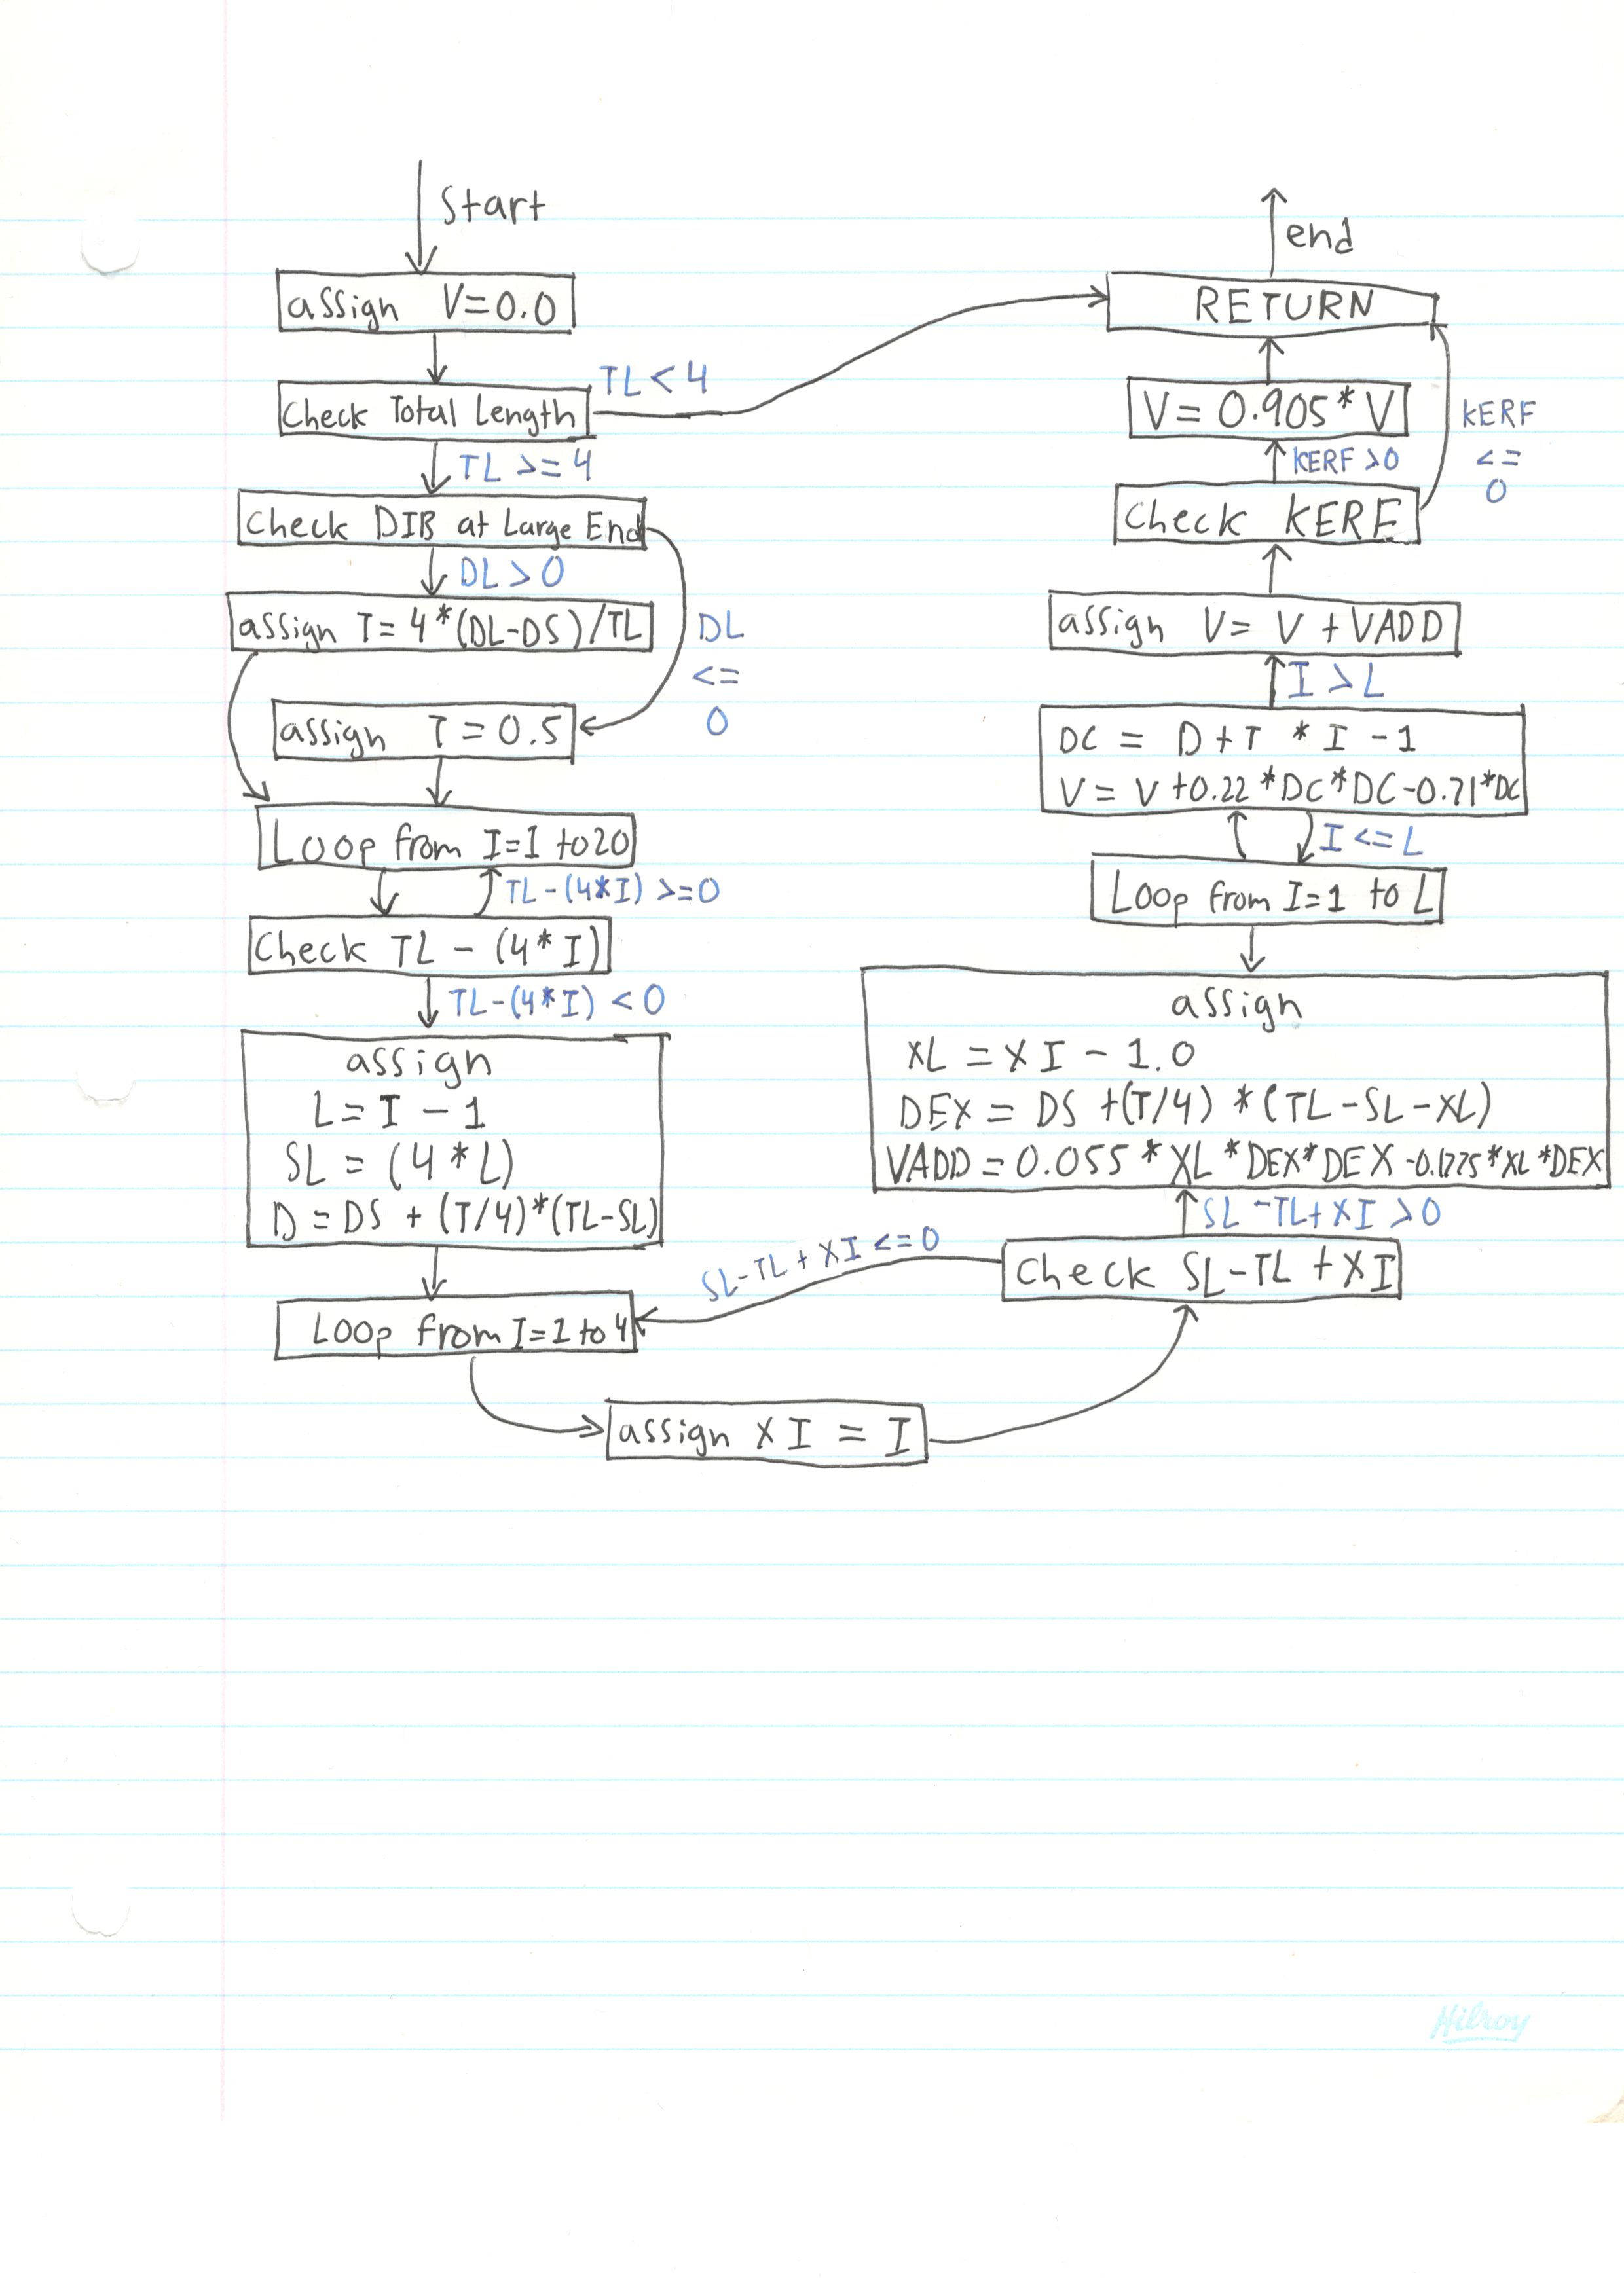 Start
assign V=0.0
Check Total Length
TL < 4
TL >= 4
Check DIB at Large End
DL > 0
assign T= 4*(DL-DS)/TL
DL
<=
0
assign T = 0.5
Loop from I=1 to 20
TL-(4*I) >=0
Check TL - (4*I)
TL-(4*I) < 0
assign
L= I - 1
SL = (4*L)
D = DS + (T/4)*(TL-SL)
Loop from I=1 to 4
assign XI = I
SL-TL+XI <=0
Check SL-TL+XI
SL-TL+XI >0
assign
XL = XI - 1.0
DEX = DS +(T/4) *(TL-SL-XL)
VADD = 0.055*XL*DEX*DEX-0.1775*XL*DEX
Loop from I=1 to L
I <= L
DC = D+T * I -1
V= V+0.22*DC*DC-0.71*DC
I > L
assign V= V + VADD
Check KERF
KERF >0
KERF
<=
0
V= 0.905* V
RETURN
end
Hilroy